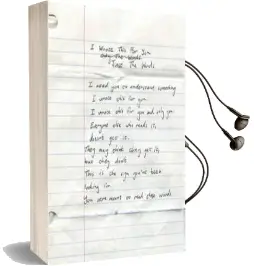 I Wrote This For You
Just The Words
I need you to understand something.
I wrote this for you.
I wrote this for you and only you.
Everyone else who reads it,
doesn't get it.
They may think they get it,
but they don't.
This is the sign you've been
looking for.
You were meant to read these words.